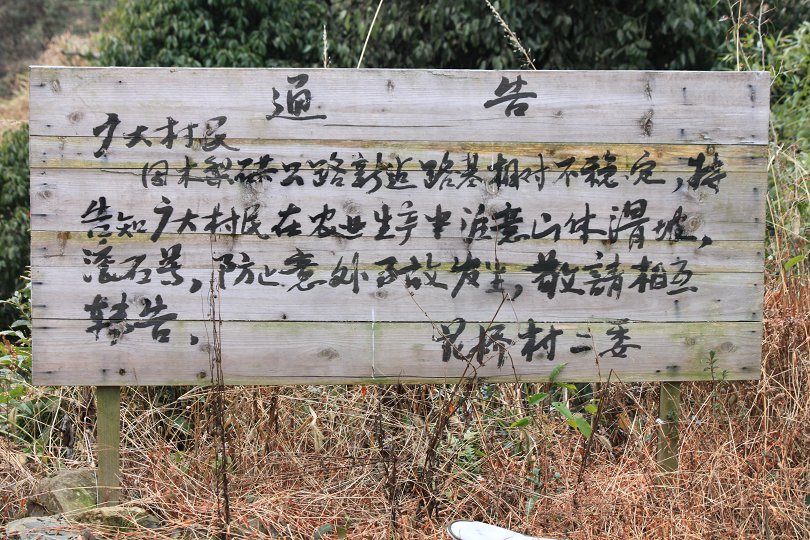 通告
广大村民
因木 公路新近路基相对不稳定,特
告知广大村民在农业生产中注意山体滑坡,
滚石等,防止意外事故发生,敬請相互
转告.
坪村二委